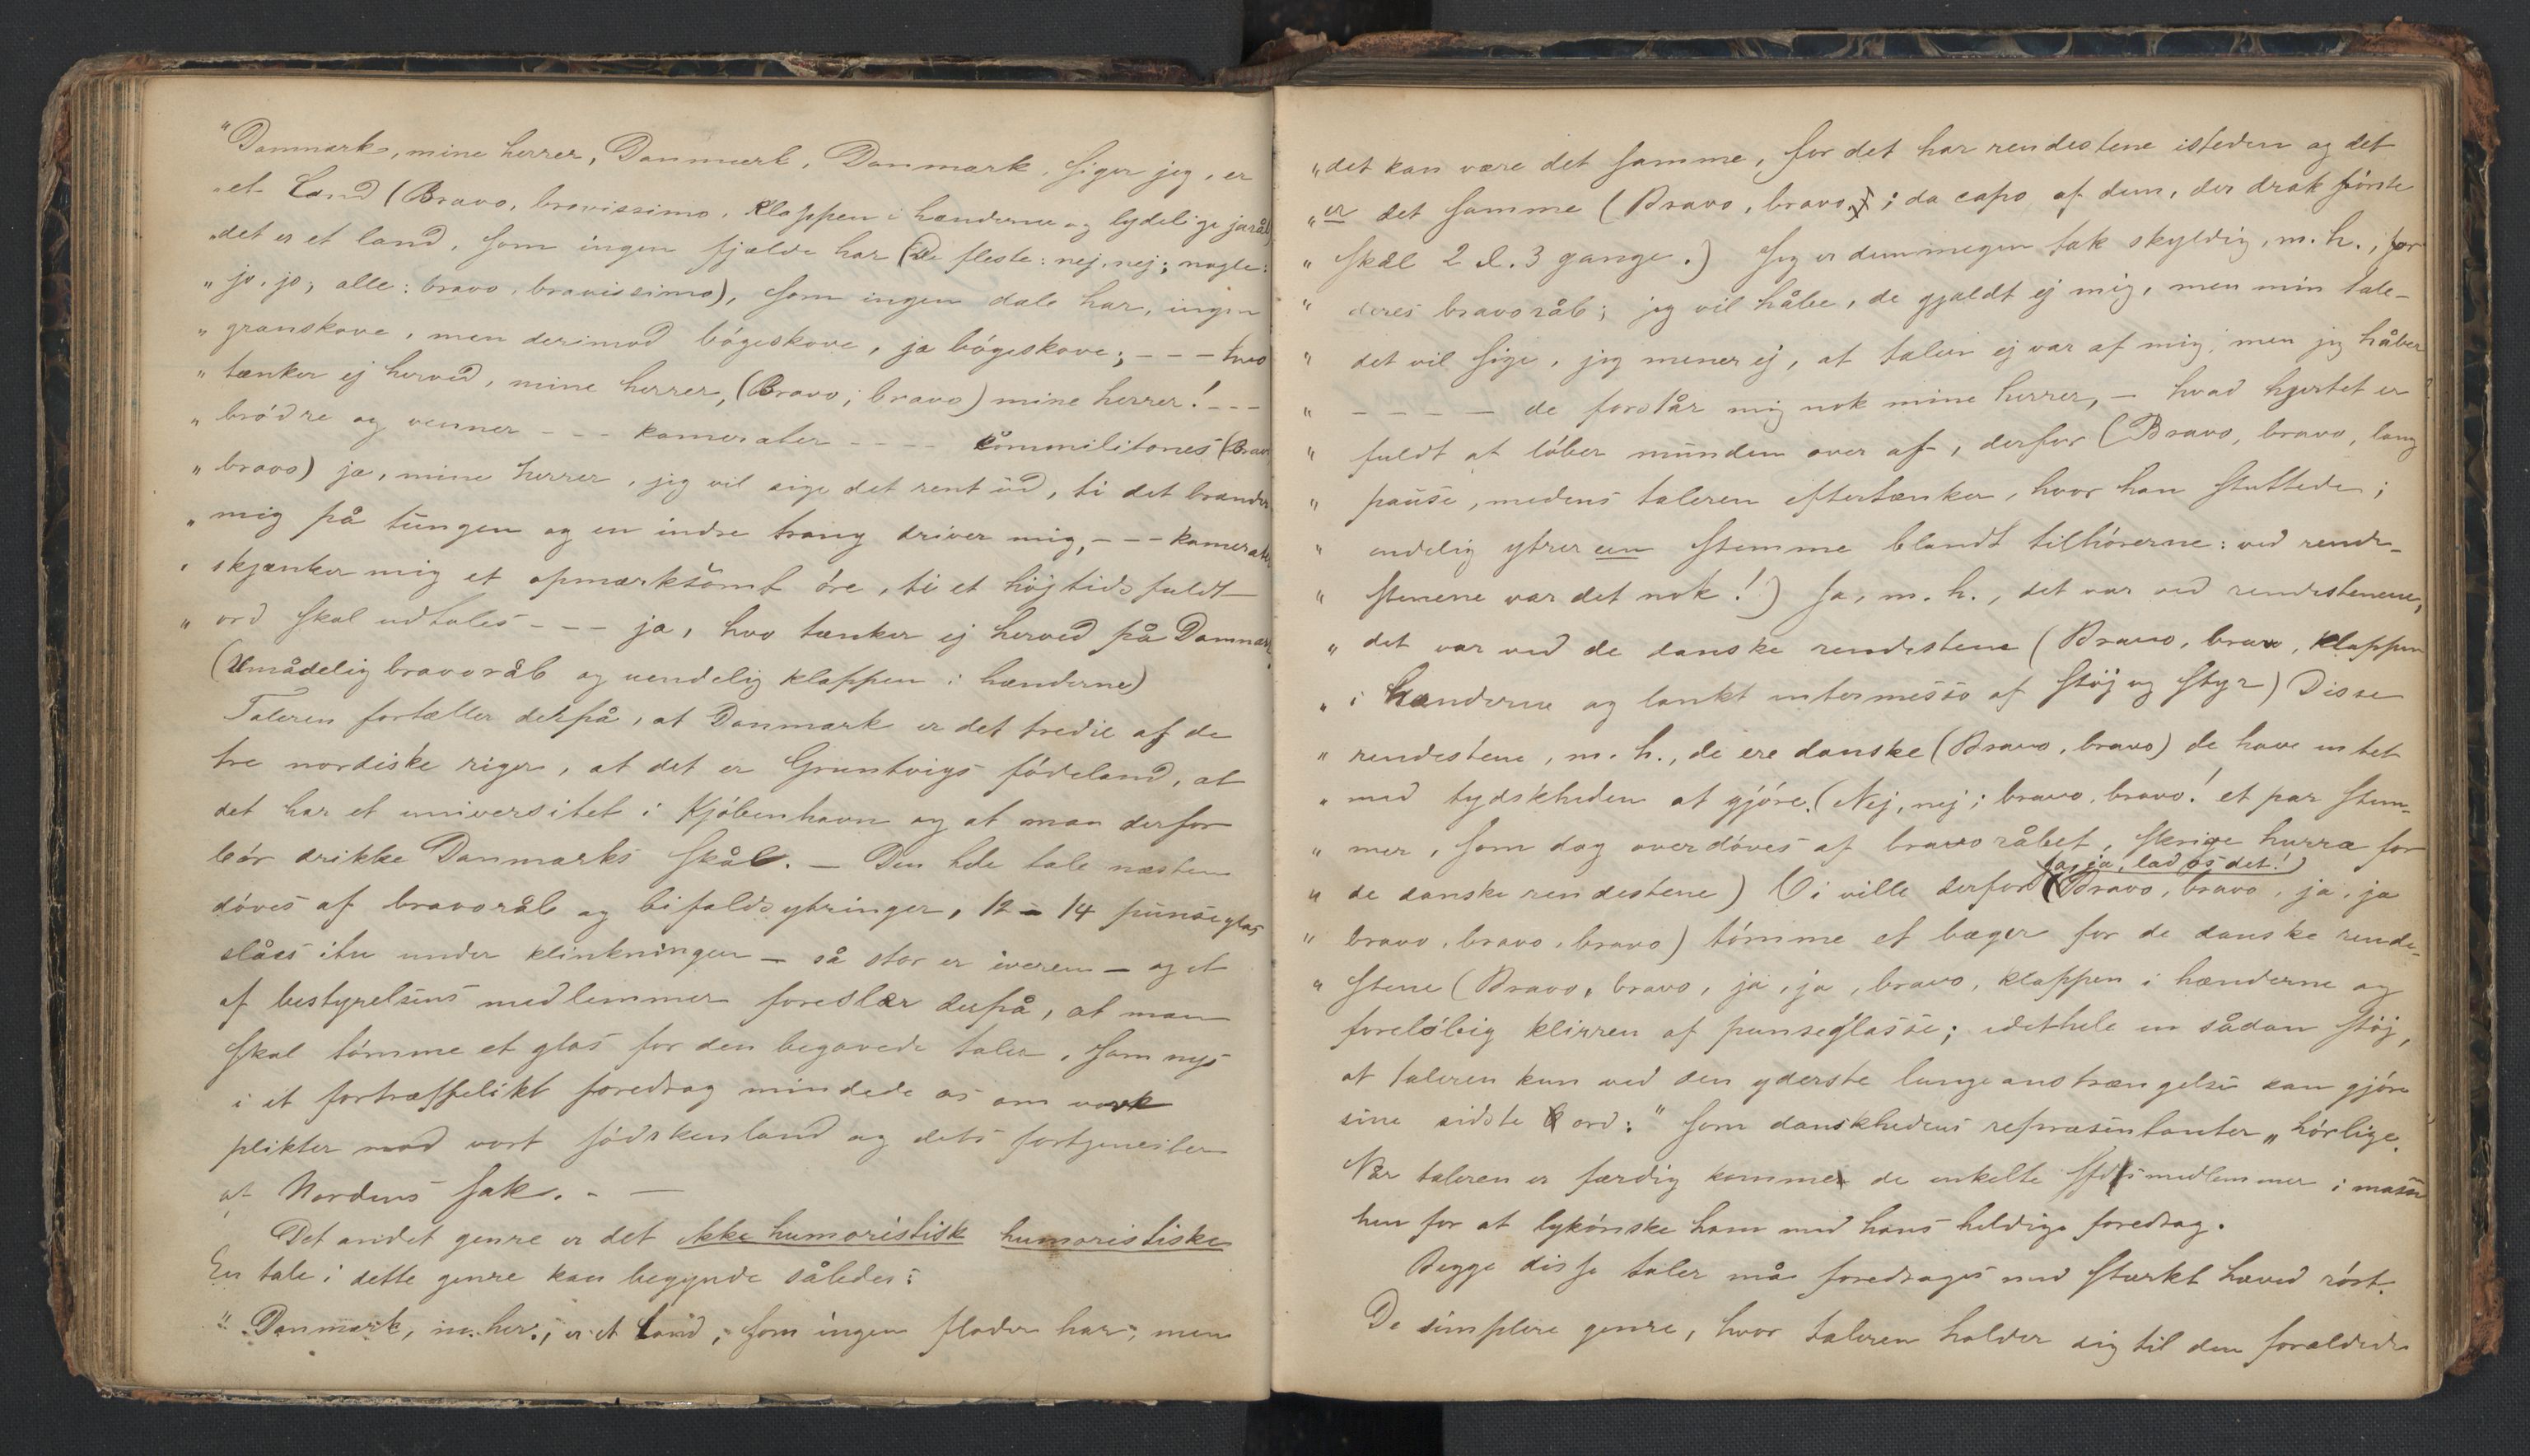 "Danmark, mine herrer, Danmark, Danmark, siger jeg, er
"et Land (Bravo, bravissimo, klappen i hænderne og lydelige jaråb)
"det er et land, som ingen fjælde har (De fleste: nej, nej; nogle:
"jo, jo; alle: bravo, bravissimo), som ingen dale har, ingen
"granskove, men derimod bógeskove, ja bógeskove; - - - hvo
"tænker ej herved, mine herrer, (Bravo; bravo) mine herrer! - - -
"bródre og venner - - - kamerater - - - - kommilitones (Bravo
"bravo) ja, mine herrer, jeg vil sige det rent ud, ti det brænder
"mig på tungen og en indre trang driver mig, - - - kamerater,
"skjænker mig et opmærksomt óre, ti et højtidsfuldt
"ord skal udtales - - - ja, hvo tænker ej herved på Danmark.
(Umådelig bravoråb og uendelig klappen i hænderne)
Taleren fortæller derpå, at Danmark er det tredie af de
tre nordiske riger, at det er Gruntvigs fódeland, at
det har et universitet i Kjóbenhavn og at man derfor
bór drikke Danmarks skål. — Den hele tale næsten
dóves af bravoråb og bifaldsytringer, 12 - 14 punseglas
slåes itu under klinkningen — så stor er iveren — og et
af bestyrelsens medlemmer foreslår derpå, at man
skal tómme et glas for den begavede taler, som nys
i et fortræffelikt foredrag mindede os om vore
plikter mod vort fódskenland og dets fortjenester
af Nordens sak. - —
Det andet genre er det ikke humoristisk humoristiske
En tale i dette genre kan begynde således:
"Danmark, m. her., er et land, som ingen floder har, men
"det kan være det samme, for det har rendestene isteden og det
"er det samme (Bravo, bravo; da capo af dem, der drak fórste
"skål 2 l. 3 gange.) Jeg er dem megen tak skyldig, m. h., for
"deres bravoråb; jeg vil håbe, de gjaldt ej mig, men min tale -
"det vil sige, jeg mener ej, at talen ej var af mig; men jeg håber
"- - - - - de forstår mig nok mine herrer, - hvad hjertet er
"fuldt af lóber munden over af, derfor (Bravo, bravo, lang
"pause, medens taleren eftertænker, hvor han sluttede;
"endelig ytrer een stemme blandt tilhórerne: ved rende-
"stenene var det nok!) Ja, m. h., det var ved rendestenene,
"det var ved de danske rendestene (Bravo, bravo, klappen
"i hænderne og lankt intermesso af støj og styr) Disse
"rendestene, m. h., de ere danske (Bravo, bravo) de have intet
"med tydskheden at gjóre. (Nej, nej; bravo, bravo! et par stem-
"mer, som dog overdóves af bravoråbet, skrige hurra for
ja, ja, lad os det!)
"de danske rendestene) Vi ville derfor (Bravo, bravo, ja, ja
"bravo, bravo, bravo) tómme et bæger for de danske rende-
"stene (Bravo, bravo, ja, ja, bravo, klappen i hænderne og
forelóbig klirren af punseglasse; idethele en sådan støj,
at taleren kun ved den yderste lungeanstrængelse kan gjóre
sine sidste ord: "som danskhedens repræsentanter" hórlige.
Når taleren er færdig komme de enkelte sfdsmedlemmer i masse
hen for at lykónske ham med hans heldige foredrag.
Begge disse taler må foredrages med stærkt hævet róst.
De simplere genre, hvor taleren holder sig til den forældede